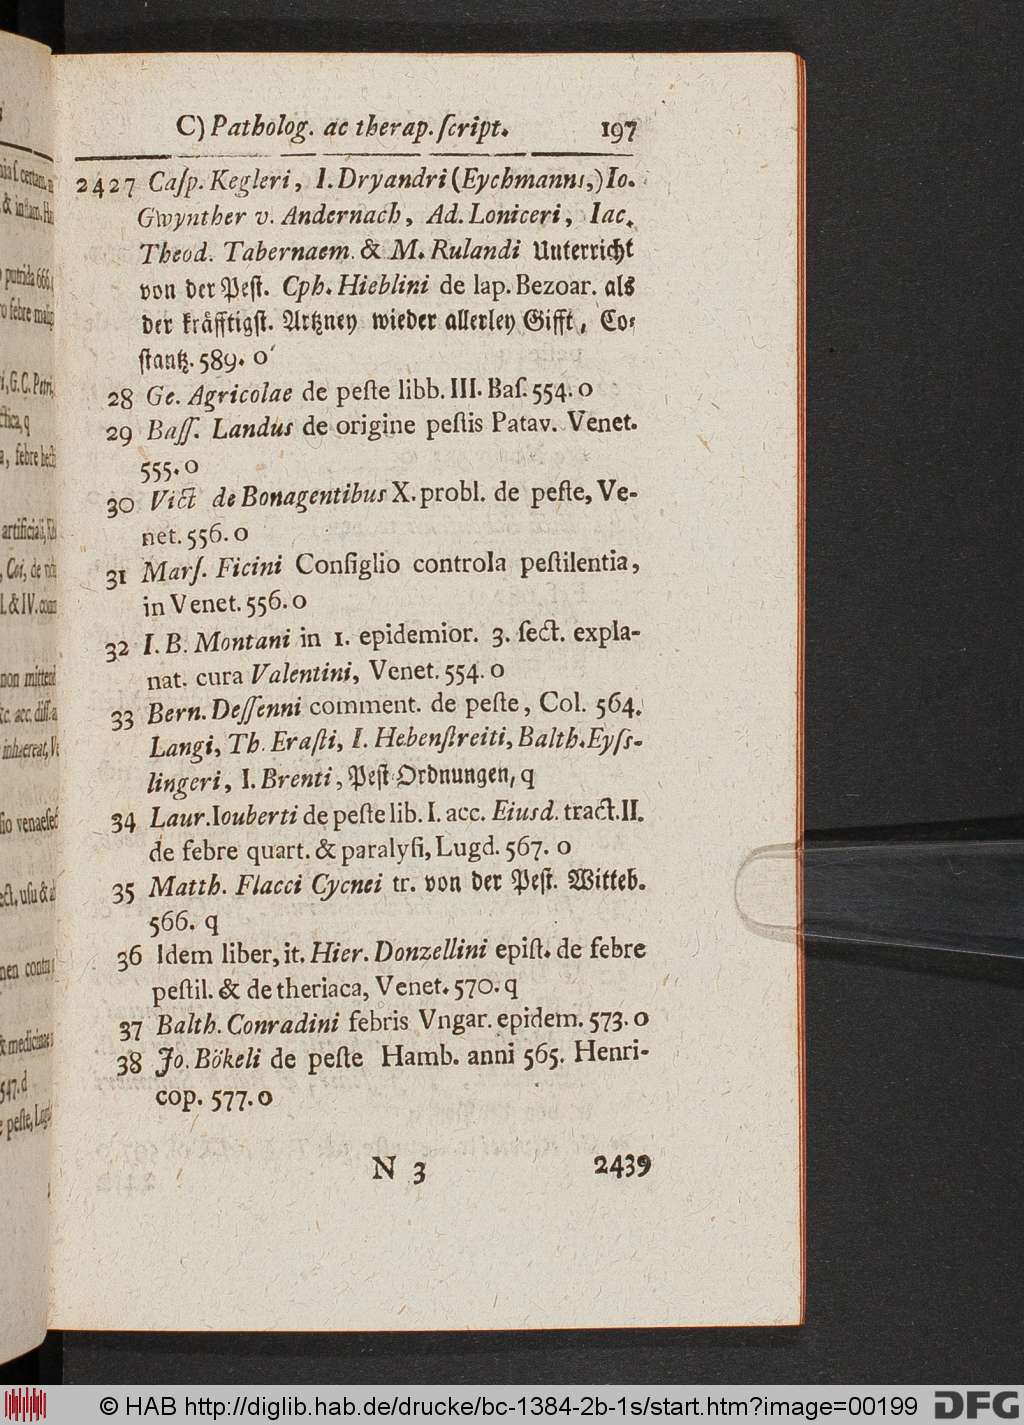 C) Patholog. ac therap. ſcript. 197
2427 Caſp. Kegleri, I. Dryandri (Eychmanns,) Io.
Gwynther v. Andernach, Ad. Loniceri, Iac.
Theod. Tabernaem. & M. Rulandi Unterricht
von der Peſt. Cph. Hieblini de lap. Bezoar. als
der kräfftigſt. Artzney wieder allerley Gifft, Co⸗
ſtantz. 589. o
28 Ge. Agricolae de peſte libb. III. Baſ. 554. o
29 Baſſ. Landus de origine peſtis Patav. Venet.
555. o
30 Vict de Bonagentibus X. probl. de peſte, Ve-
net. 556. o
31 Marſ. Ficini Conſiglio controla peſtilentia,
in Venet. 556. o
32 I. B. Montani in 1. epidemior. 3. ſect. expla-
nat. cura Valentini, Venet. 554. o
33 Bern. Deſſenni comment. de peſte, Col. 564.
Langi, Th. Eraſti, I. Hebenſtreiti, Balth. Eyſs-
lingeri, I. Brenti, Peſt Ordnungen, q
34 Laur. Iouberti de peſte lib. I. acc. Eiusd. tract. II.
de febre quart. & paralyſi, Lugd. 567. o
35 Matth. Flacci Cycnei tr. von der Peſt. Witteb.
566. q
36 Idem liber, it. Hier. Donzellini epiſt. de febre
peſtil. & de theriaca, Venet. 570. q
37 Balth. Conradini febris Vngar. epidem. 573. o
38 Jo. Bökeli de peſte Hamb. anni 565. Henri-
cop. 577. o
N 3 2439
© HAB http://diglib.hab.de/drucke/bc-1384-2b-1s/start.htm?image=00199 DFG